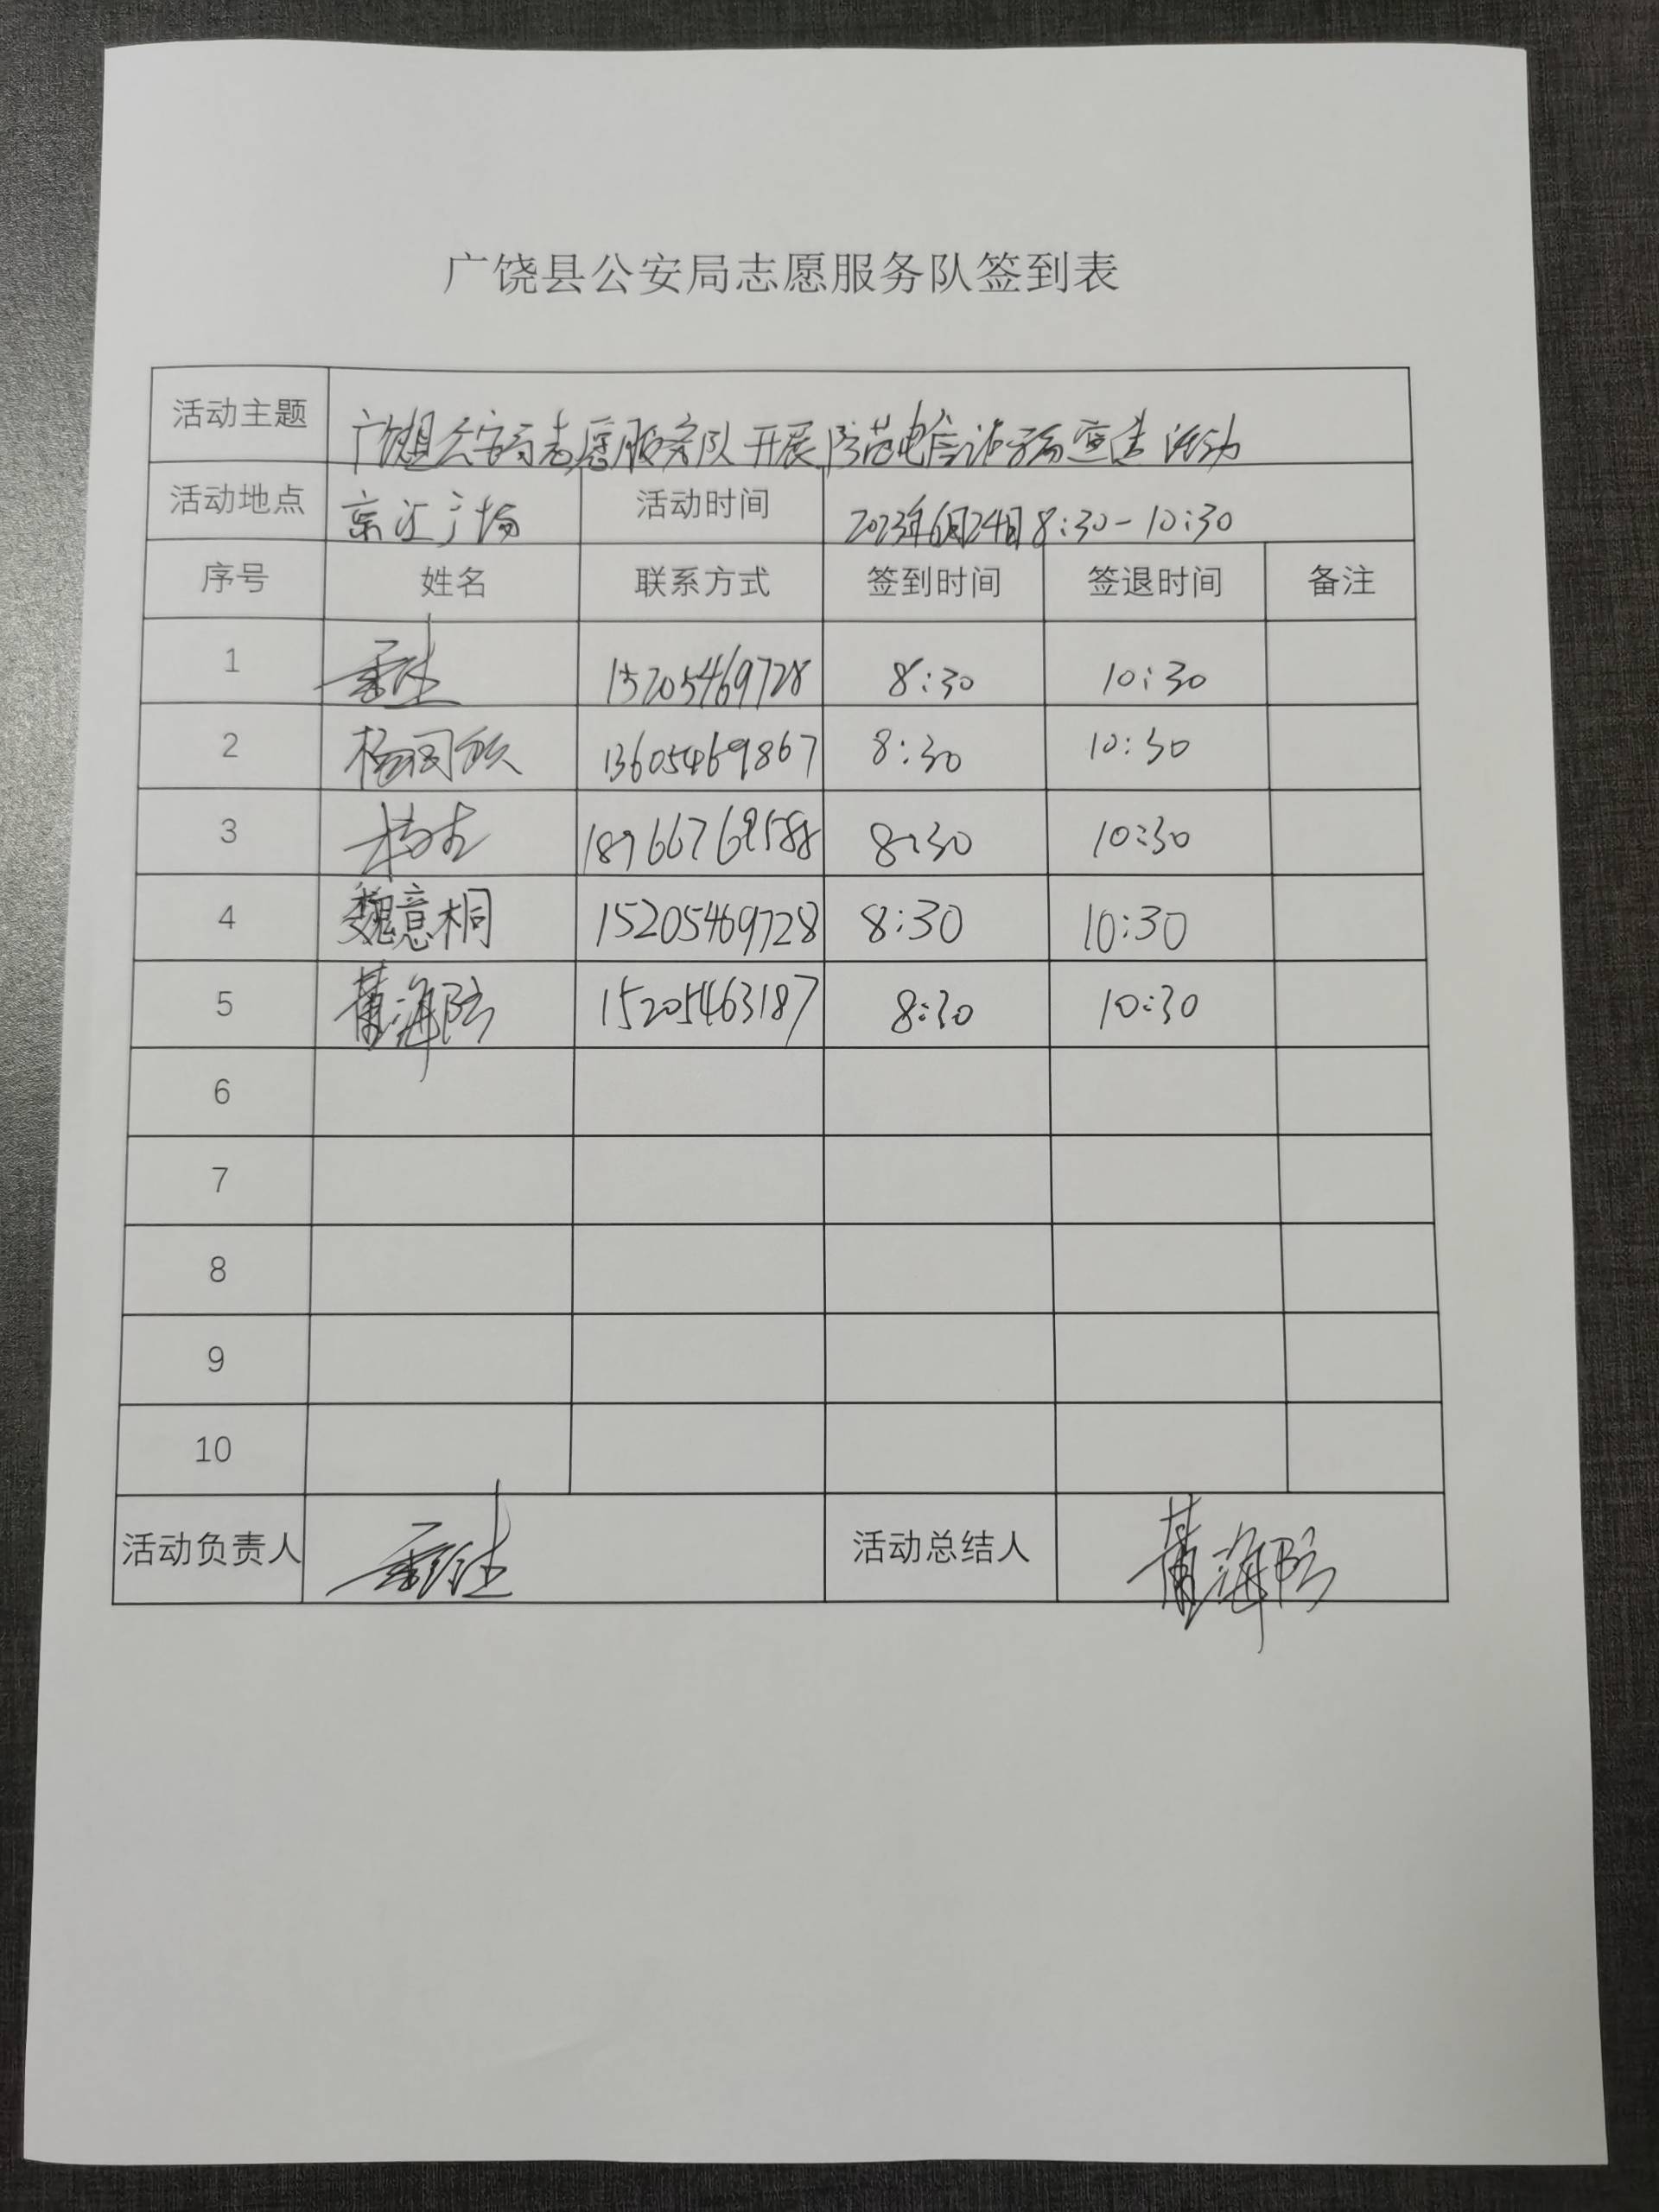 广饶县公安局志愿服务队签到表
活动主题 广饶县公安局志愿服务队开展防范电信诈骗宣传活动
活动地点 京汇广场 活动时间 2023年6月24日8:30-10:30
序号 姓名 联系方式 签到时间 签退时间 备注
1 15205469728 8:30 10:30
2 13605469867 8:30 10:30
3 18766769588 8:30 10:30
4 魏意桐 15205469728 8:30 10:30
5 黄海防 15205463187 8:30 10:30
6
7
8
9
10
活动负责人 活动总结人 黄海防